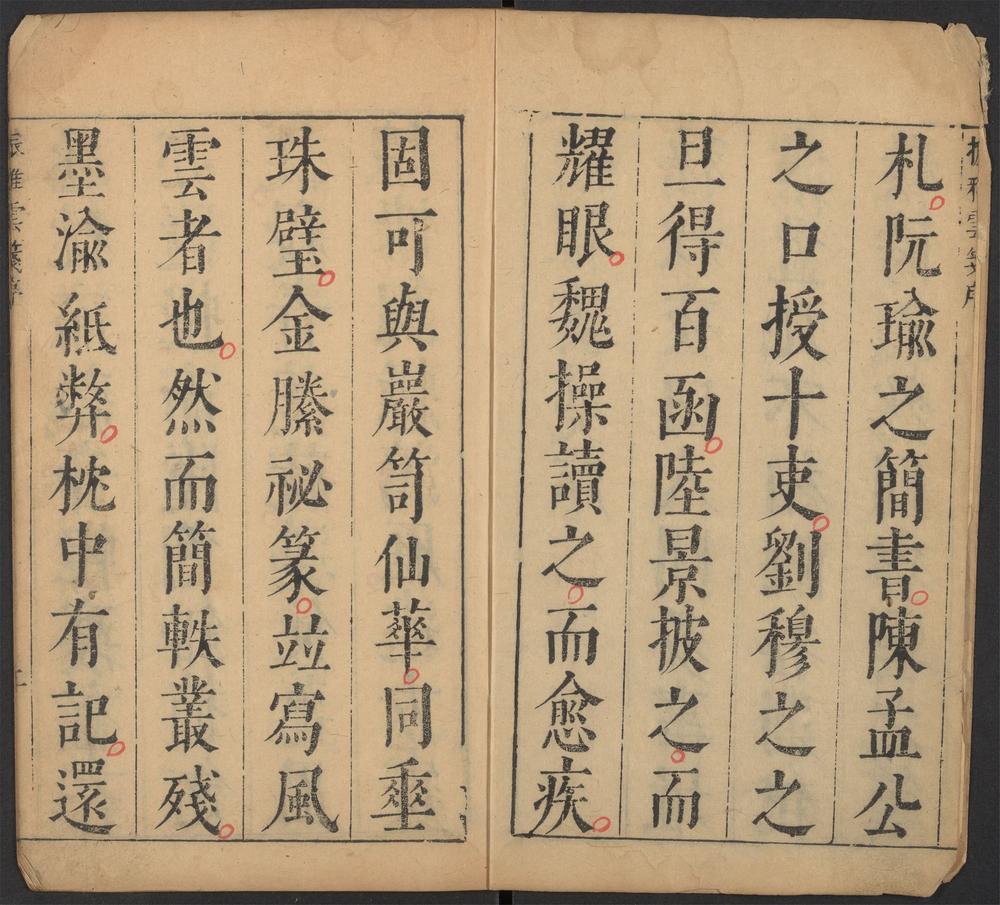 振雅雲箋序
札。阮瑜之簡書。陳孟公
之口授十吏。劉穆之之
旦得百函。陸景披之。而
耀眼。魏操讀之。而愈疾。
固可與巖笥仙華。同垂
珠璧。金縢祕篆。竝寫風
雲者也。然而簡軼叢殘。
墨渝紙弊。枕中有記。還
振雅雲箋序